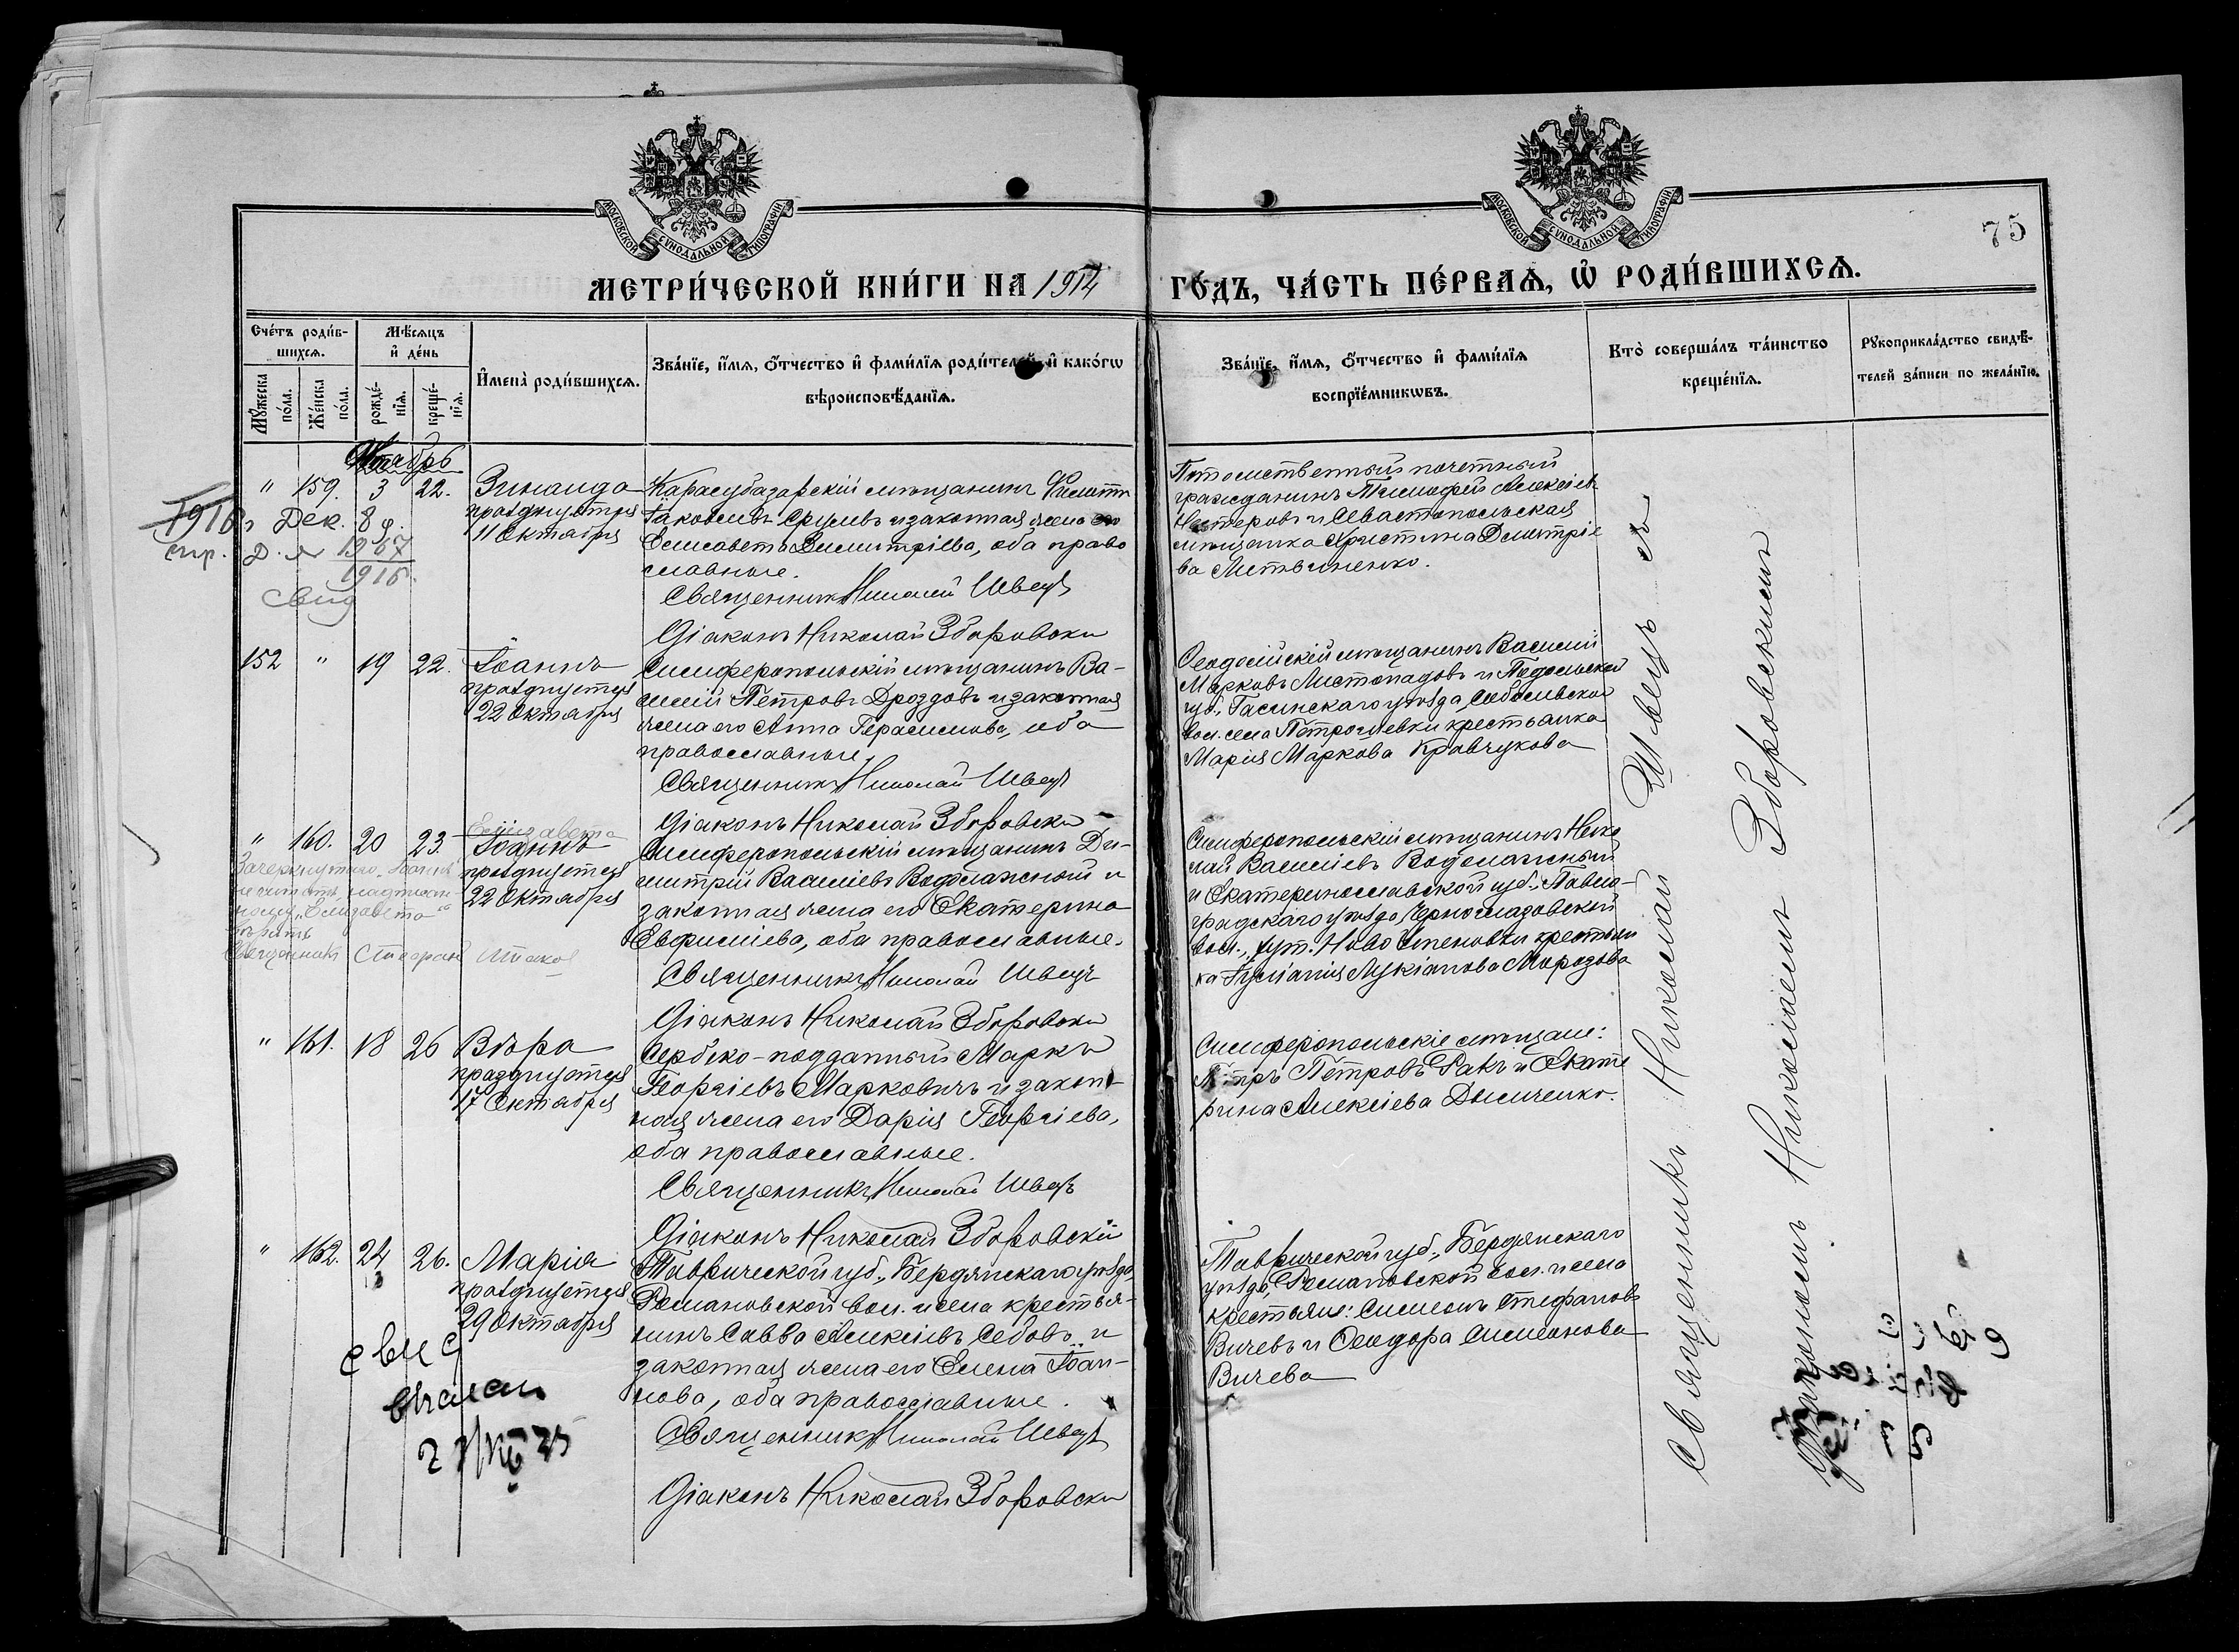 МОСКОВСКОЙ СУНОДАЛЬНОЙ ТИПОГРАФІИ
МОСКОВСКОЙ СУНОДАЛЬНОЙ ТИПОГРАФІИ
75
МЕТРИ́ЧЕСКОЙ КНИ́ГИ НА 1914
ГО́ДЪ, ЧА́СТЬ ПЕ́РВАѦ, Ѽ РОДИ́ВШИХСѦ.
Сче́тъ роди́в-
шихсѧ.
Мѣ́сѧцъ
и҆ де́нь
Мꙋ́жеска по́ла.
Же́нска по́ла.
рожде́-
нїѧ.
креще́-
нїѧ.
И҆мена̀ роди́вшихсѧ.
Зва́нїе, и҆́мѧ, ѻ҆́тчество и҆ фами́лїѧ роди́телей, и҆ како́гѡ
вѣроисповѣ́данїѧ.
Зва́нїе, и҆́мѧ, ѻ҆́тчество и҆ фами́лїѧ
воспрїе́мникѡвъ.
Кто̀ соверша́лъ та́инство
креще́нїѧ.
Рꙋкоприкла́дство свидѣ́-
телей за́писи по жела́нїю.
Октябрь
" 159. 3 22. Зинаида
празднуется
11 Октября
Карасубазарскій мѣщанинъ
Яковлевъ и законная жена его
Елисавета Димитріева, оба право
славные.
Священникъ Николай Швецъ
Діаконъ Николай Зборовски
Потомственный почетный
гражданинъ Тимофей Алексіевъ
Нестеровъ и Севастопольская
мѣщанка Христина Димитріе
ва Литвиненко.
1916 г Дек. 8 д.
1967
1916
свид
152 " 19 22. Іоаннъ
празднуется
22 Октября
Симферопольскій мѣщанинъ Ва-
силій Петровъ Дроздовъ и законная
жена его Анна Герасимова, оба
православные.
Священникъ Николай Швецъ
Діаконъ Николай Зборовски
Ѳеодосійскій мѣщанинъ Василій
Марковъ Листопадовъ и Подольской
губ., Гасинскаго уѣзда, Соболевской
вол. села Петрошевки крестьянка
Марія Маркова Кравчукова
" 160. 20 23. Елизавета
Іоаннъ
празднуется
22 Октября
Зачеркнутаго "Іоаннъ"
не читать, надписан-
ному "Елизавета"
вѣрить
Священникъ Стефанъ
Симферопольскій мѣщанинъ Ди-
митрій Василіевъ Водолажскій и
законная жена его Екатерина
Евфиміева, оба православные.
Священникъ Николай Швецъ
Діаконъ Николай Зборовски
Симферопольскій мѣщанинъ Нико
лай Василіевъ Водолажскій
и Екатеринославской губ., Павло-
градскаго уѣзда, Черноглазовской
вол., хут. Ново крестьян
ка Іуліанія Лукіанова Морозова
" 161. 18 26 Вѣра
празднуется
17 Октября
Сербско-подданный Марко
Георгіевъ Марковичъ и закон-
ная жена его Дарія Георгіева,
оба православные.
Священникъ Николай Швецъ
Діаконъ Николай Зборовскій
Симферопольскіе мѣщане:
Петръ Петровъ Ракъ и Екате
рина Алексіева Дымченко.
" 162. 24 26. Марія
празднуется
29 Октября
Таврической губ., Бердянскаго уѣзда,
Романовской вол. и села крестья-
нинъ Савва Алексіевъ Седовъ и
законная жена его Елена Іоан-
нова, оба православные.
Священникъ Николай Швецъ
Діаконъ Николай Зборовски
Таврической губ., Бердянскаго
уѣзда, Романовской вол. и села
крестьяне: Симеонъ Стефановъ
Вичевъ и Ѳеодора Симеонова
Вичева
Священникъ Николай Швецъ съ
Діакономъ Николаемъ Зборовскимъ